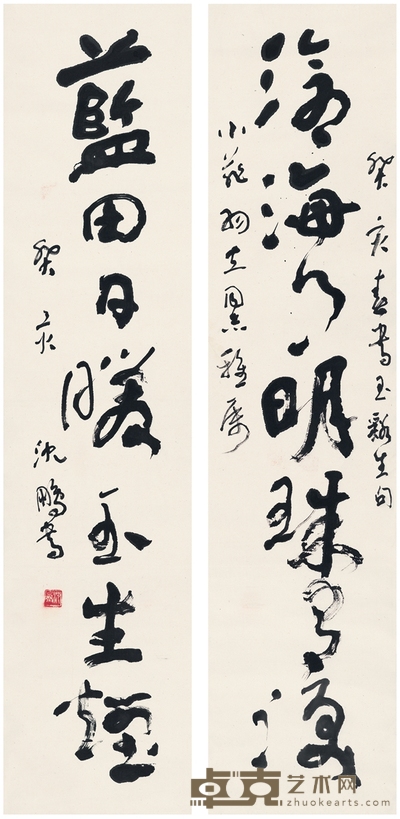 癸亥春書玉谿生句
滄海月明珠有淚
同志雅屬
藍田日暖玉生煙
癸亥
沈鵬書
卓克艺术网
zhuokearts.com